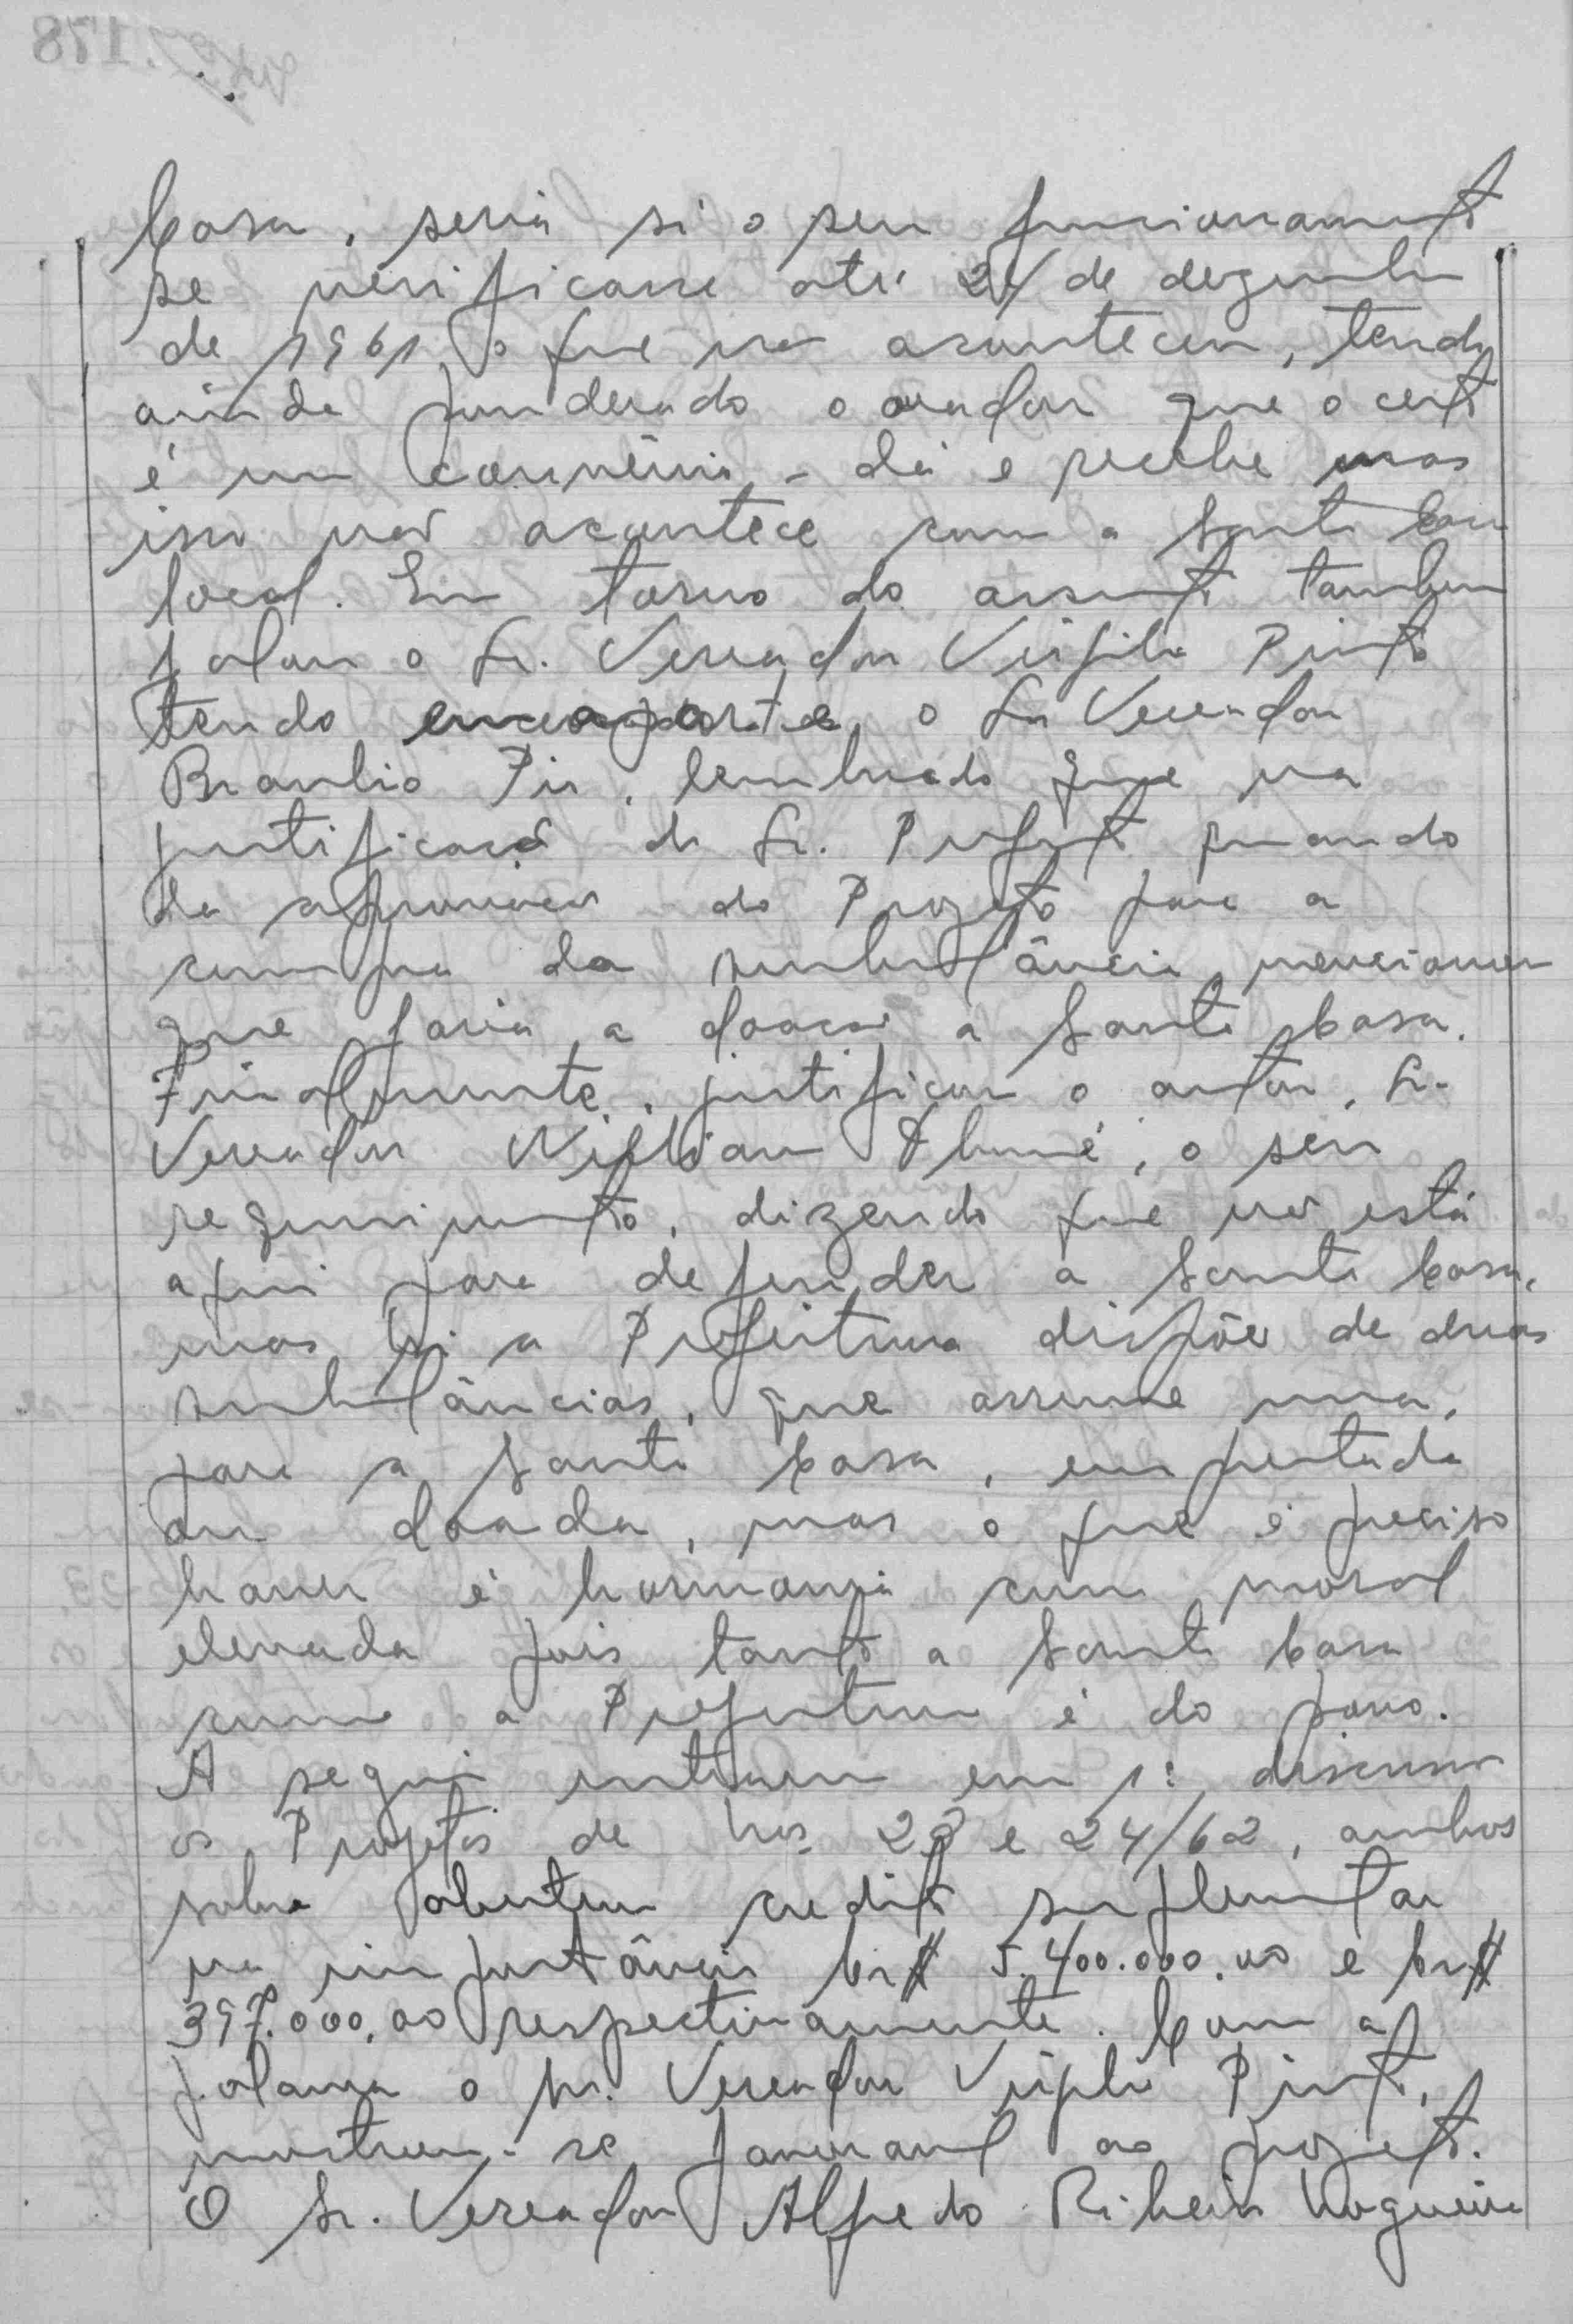 Casa, seria si o seu funcionamento
se verificasse até 24 de dezembro
de 1961, o que não aconteceu, tendo
ainda ponderado o orador que o certo
é um convênio - dá e recebe mas
isso não acontece com a Santa Casa
local. Em torno do assunto tambem
falou o Sr. Vereador Virgilio Pinto
tendo em aparte o Sr Vereador
Braulio Pio, lembrado que na
justificação do Sr. Prefeito quando
da aprovação do Projeto para a
compra da ambulância, mencionou
que faria a doação a Santa Casa.
Finalmente, justificou o autor, Sr.
Vereador William, o seu
requerimento, dizendo que não está
aqui para defender a Santa Casa,
mas si a Prefeitura dispõe de duas
ambulâncias, que arrume uma,
para a Santa Casa, emprestada
ou doada, mas o que é preciso
haver é harmonia com moral
elevada pois tanto a Santa Casa
como a Prefeitura é do povo.
A seguir entraram em 1ª discussão
os Projetos de nos. 23 e 24/62, ambos
sobre abertura credito suplementar
na importância Cr$ 5.400.000.00 e Cr$
397.000,00 respectivamente. Com a
palavra o Sr. Vereador Virgilio Pinto,
mostrou-se favoravel ao projeto.
O Sr. Vereador Alfredo Ribeiro Nogueira